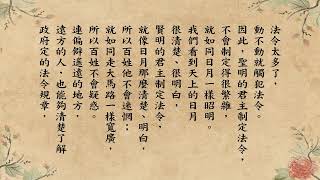 法令太多了，
動不動就觸犯法令。
因此，聖明的君主制定法令，
不會制定得很繁雜，
就如同日月一樣昭明。
我們看到天上的日月
很清楚、很明白，
賢明的君主制定法令，
就像日月那麼清楚、明白，
所以百姓他不會迷惘；
就如同走大馬路一樣寬廣，
所以百姓不會疑惑。
連偏僻遙遠的地方，
遠方的人，也能夠清楚了解
政府定的法令規章，